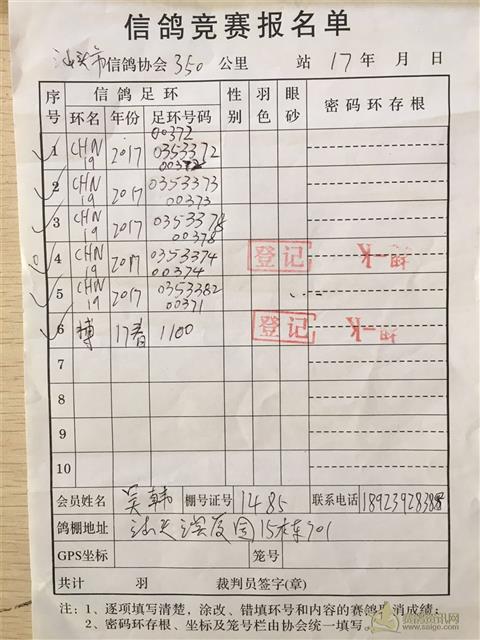 信鸽竞赛报名单
汕头市信鸽协会 350 公里 站 17 年 月 日
序号 信鸽足环 性别 羽色 眼砂 密码环存根
环名 年份 足环号码
00372
1 CHN 19 2017 0353372
00372
2 CHN 19 2017 0353373
00373
3 CHN 19 2017 0353378
00378
4 CHN 19 2017 0353374 登记
00374
5 CHN 19 2017 0353382
00371
6 博 17春 1100 登记
7
8
9
10
会员姓名 吴韩 棚号证号 1485 联系电话
鸽棚地址 15栋701
GPS坐标 笼号
共计 羽 裁判员签字(章)
注:1、逐项填写清楚,涂改、错填环号和内容的赛鸽取消成绩;
2、密码环存根、坐标及笼号栏由协会统一填写。
赛鸽资讯网
www.saige.com